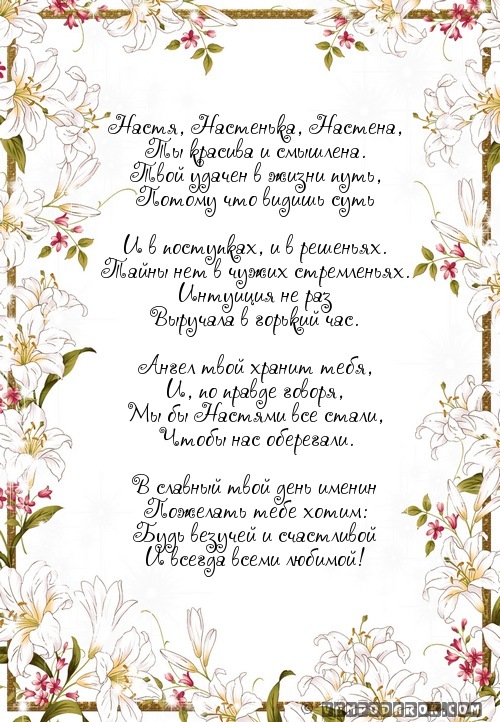 Настя, Настенька, Настена,
Ты красива и смышлена.
Твой удачен в жизни путь,
Потому что видишь суть
И в поступках, и в решеньях.
Тайны нет в чужих стремленьях.
Интуиция не раз
Выручала в горький час.
Ангел твой хранит тебя,
И, по правде говоря,
Мы бы Настями все стали,
Чтобы нас оберегали.
В славный твой день именин
Пожелать тебе хотим:
Будь везучей и счастливой
И всегда всеми любимой!
© VAMPODAROK.COM